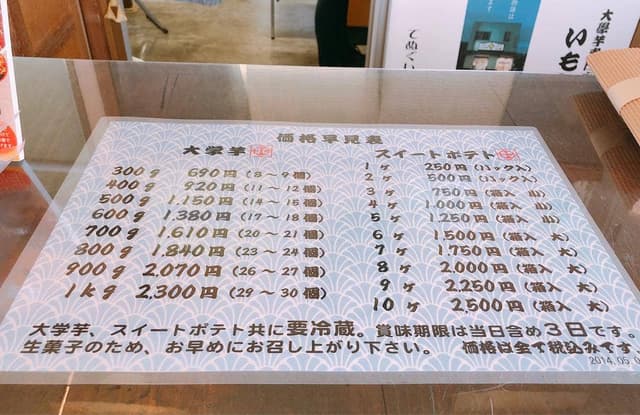 大學芋
いも
てぬぐい
価格早見表
大学芋
300g 690円 (8～9個)
400g 920円 (11～12個)
500g 1,150円 (14～15個)
600g 1,380円 (17～18個)
700g 1,610円 (20～21個)
800g 1,840円 (23～24個)
900g 2,070円 (26～27個)
1kg 2,300円 (29～30個)
スイートポテト
1ヶ 250円 (パック入)
2ヶ 500円 (パック入)
3ヶ 750円 (箱入 小)
4ヶ 1,000円 (箱入 小)
5ヶ 1,250円 (箱入 小)
6ヶ 1,500円 (箱入 大)
7ヶ 1,750円 (箱入 大)
8ヶ 2,000円 (箱入 大)
9ヶ 2,250円 (箱入 大)
10ヶ 2,500円 (箱入 大)
大学芋、スイートポテト共に要冷蔵。賞味期限は当日含め3日です。
生菓子のため、お早めにお召し上がり下さい。 価格は全て税込みです。
2014.05